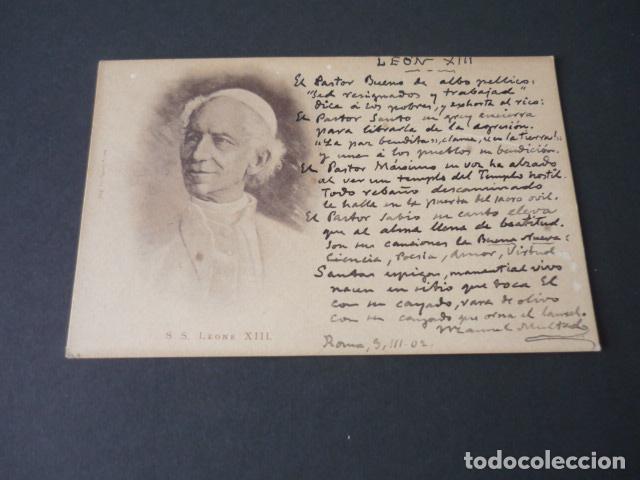 LEON XIII
El Pastor Bueno de albo pellico:
"Sed resignados y trabajad"
dice á los pobres, y exhorta al rico:
El Pastor Santo su grey encierra
para librarla de la agresión.
"La paz bendita", clama, "en la tierra!"
y une á los pueblos su bendición.
El Pastor Máximo su voz ha alzado
al ver un templo del Templo hostil.
Todo rebaño descaminado
le halla en la puerta del sacro ovil.
El Pastor Sabio su canto eleva
que al alma llena de beatitud.
Son sus canciones la Buena Nueva:
Ciencia, Poesía, Amor, Virtud
Santas espigas, manantial vivo
nacen en sitio que toca El
con su cayado, vara de olivo
con su cayado que orna el laurel.
Manuel
Roma, 9, III-02
S. S. LEONE XIII.
todocoleccion